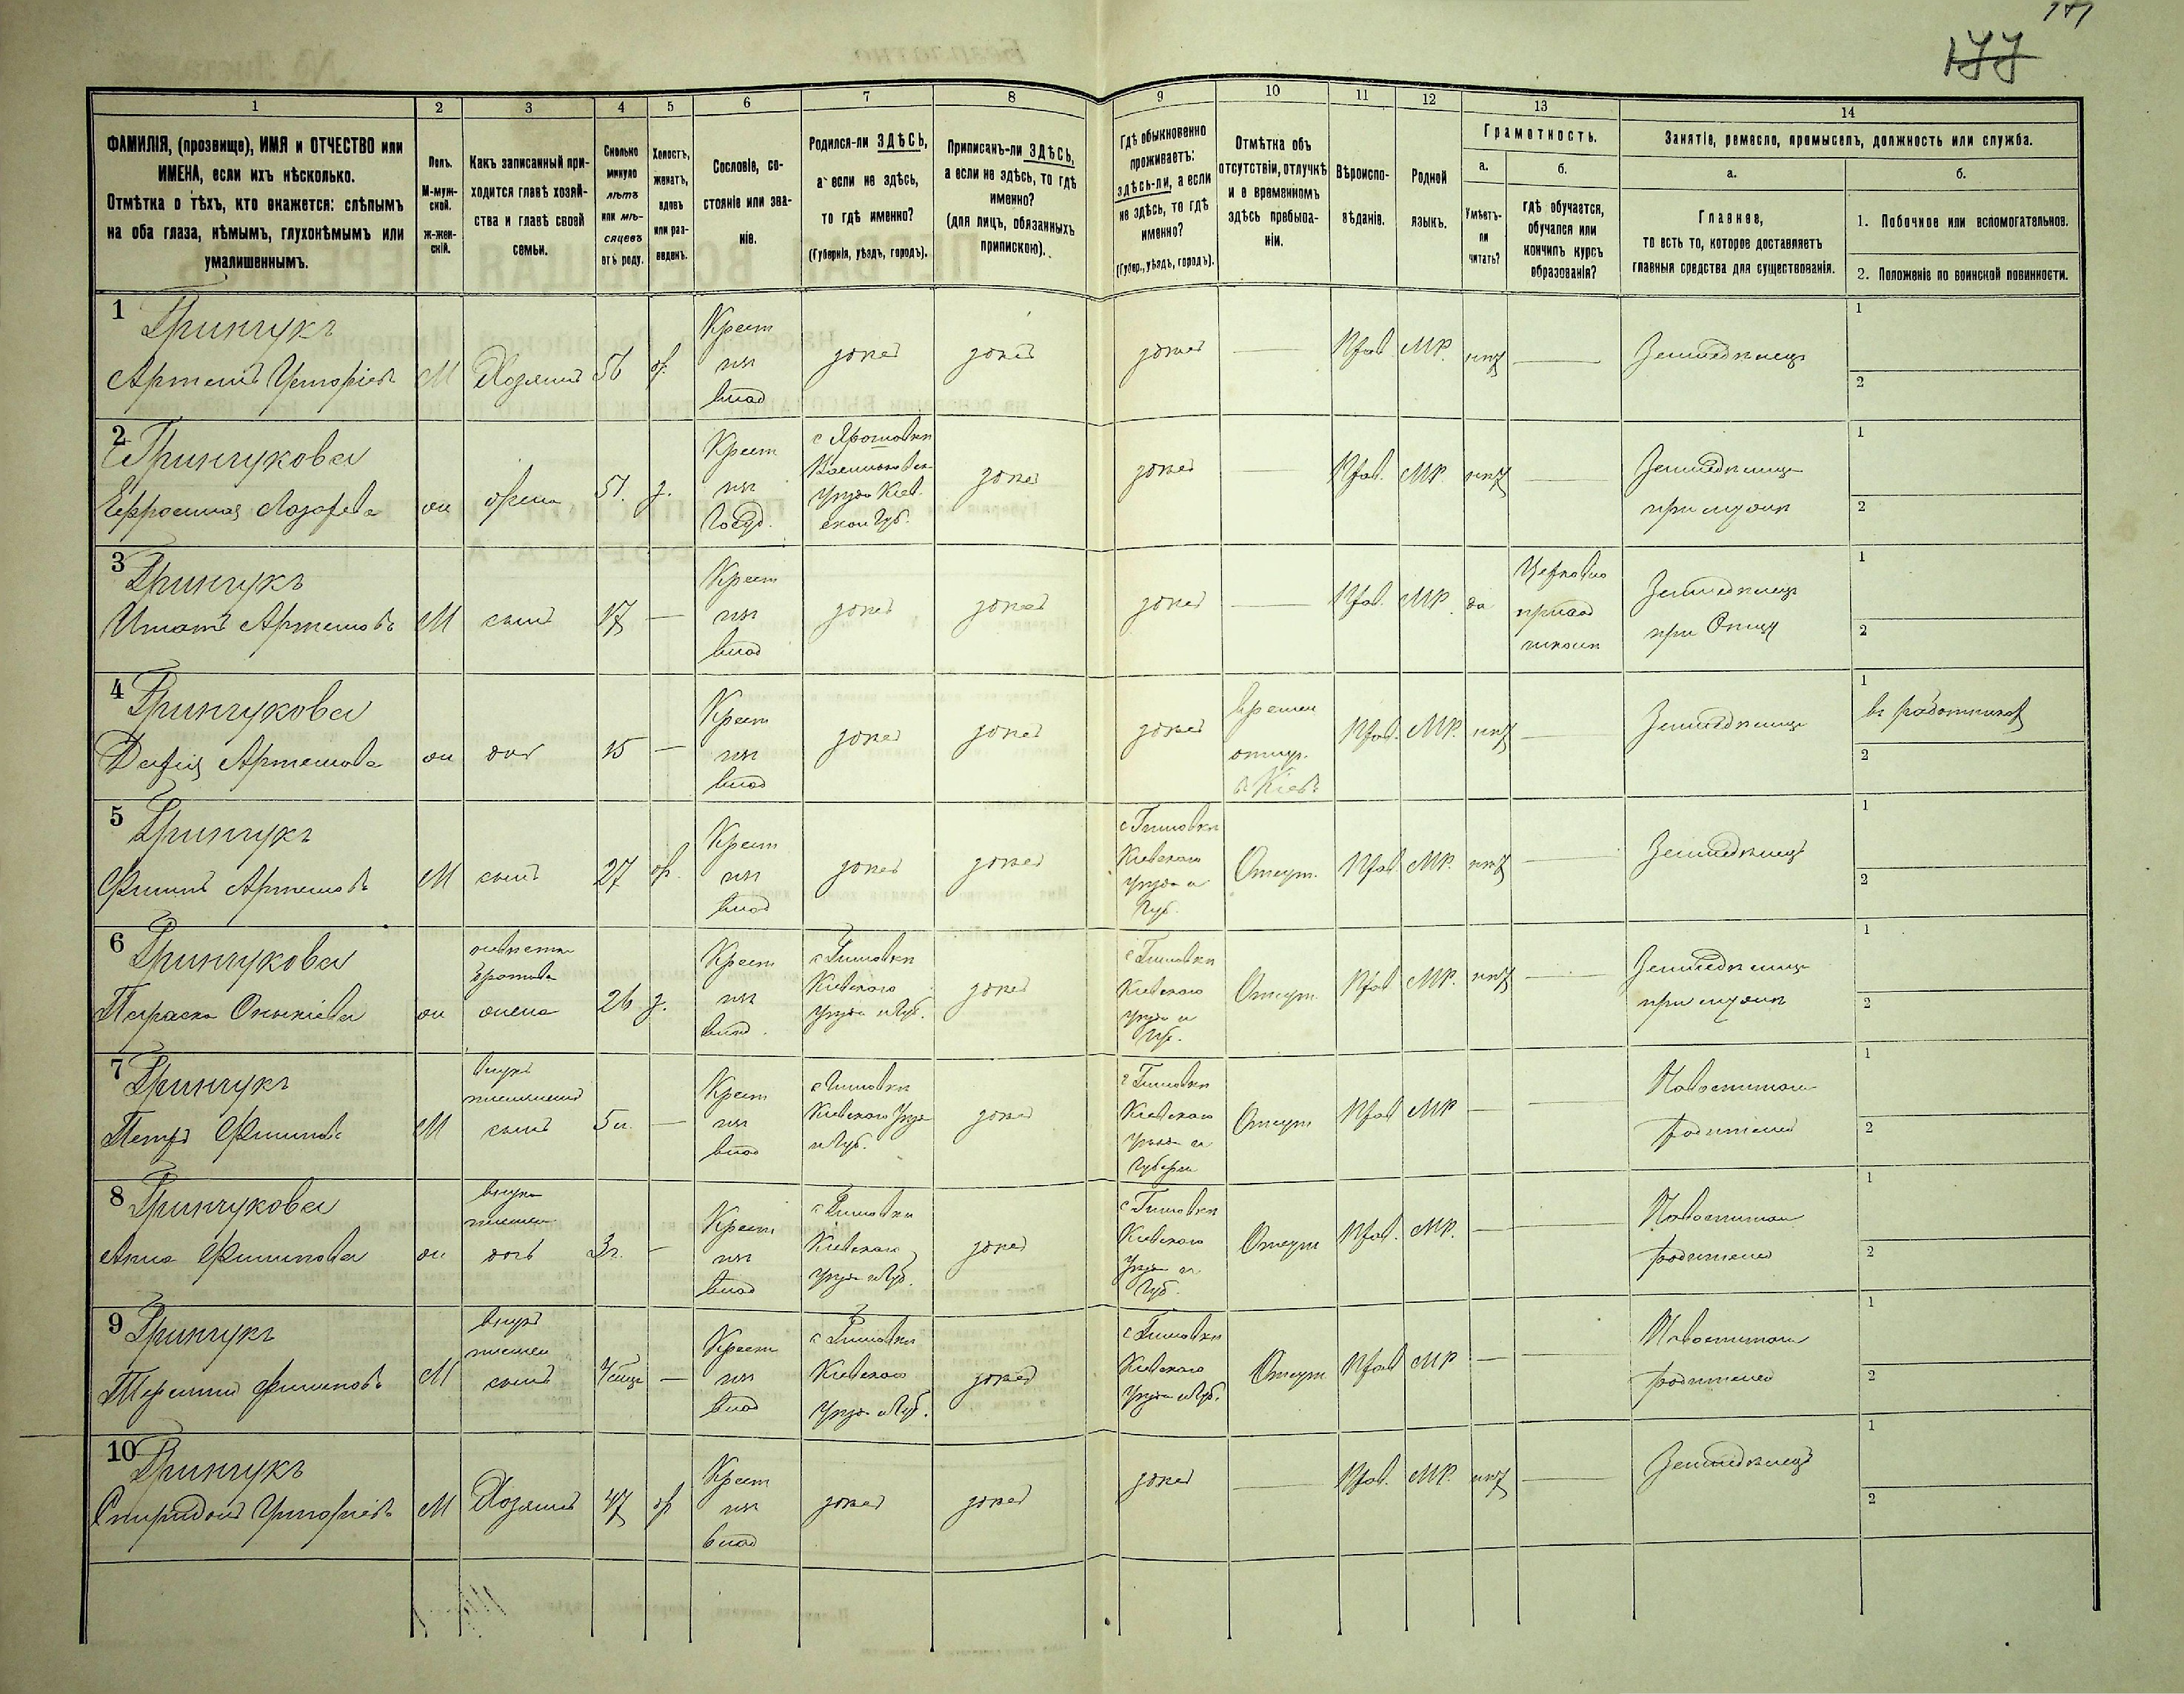 177
1
2
3
4
5
6
7
8
9
10
11
12
13
14
ФАМИЛІЯ, (прозвище), ИМЯ и ОТЧЕСТВО или
ИМЕНА, если ихъ нѣсколько.
Отмѣтка о тѣхъ, кто окажется: слѣпымъ
на оба глаза, нѣмымъ, глухонѣмымъ или
умалишеннымъ.
Полъ.
М-муж-
ской.
Ж-жен-
скій.
Какъ записанный при-
ходится главѣ хозяй-
ства и главѣ своей
семьи.
Сколько
минуло
лѣтъ
или мѣ-
сяцевъ
отъ роду.
Холостъ,
женатъ,
вдовъ
или раз-
веденъ.
Сословіе, со-
стояніе или зва-
ніе.
Родился-ли ЗДѢСЬ,
а если не здѣсь,
то гдѣ именно?
(Губернія, уѣздъ, городъ).
Приписанъ-ли ЗДѢСЬ,
а если не здѣсь, то гдѣ
именно?
(для лицъ, обязанныхъ
припискою).
Гдѣ обыкновенно
проживаетъ:
здѣсь-ли, а если
не здѣсь, то гдѣ
именно?
(Губер., уѣздъ, городъ).
Отмѣтка объ
отсутствіи, отлучкѣ
и о временномъ
здѣсь пребыва-
ніи.
Вѣроиспо-
вѣданіе.
Родной
языкъ.
Грамотность.
а.
Умѣетъ-
ли
читать?
б.
гдѣ обучается,
обучался или
кончилъ курсъ
образованія?
Занятіе, ремесло, промыселъ, должность или служба.
а.
Главное,
то есть то, которое доставляетъ
главныя средства для существованія.
б.
1. Побочное или вспомогательное.
2. Положеніе по воинской повинности.
1
Гринчукъ
Артемъ Григоріевъ
М
Хозяинъ
56
ж.
Крест
изъ
влад
здѣсь
здѣсь
здѣсь
Прав
МР.
нѣтъ
Земледѣлецъ
1
2
2
Гринчукова
Ефросинія Лазарева
ж
жена
51.
з.
Крест
изъ
Госуд.
Васильковск
уѣзда Кіев.
ской Губ.
здѣсь
здѣсь
Прав.
МР.
нѣтъ
Земледѣлица
при мужѣ
1
2
3
Гринчукъ
Игнатъ Артемовъ
М
сынъ
17
Крест
изъ
влад
здѣсь
здѣсь
здѣсь
Прав.
МР.
да
Церковно
приход
школѣ
Земледѣлецъ
при Отцѣ
1
2
4
Гринчукова
Дарія Артемова
ж
доч
15
Крест
изъ
влад
здѣсь
здѣсь
здѣсь
времен
отлуч.
въ Кіевѣ
Прав.
МР.
нѣтъ
Земледѣлица
1
въ работницах
2
5
Гринчукъ
Филипъ Артемовъ
М
сынъ
27
ж.
Крест
изъ
влад
здѣсь
здѣсь
Кіевскаго
уѣзда и
Губ.
Отсут.
Прав
МР.
нѣтъ
Земледѣлецъ
1
2
6
Гринчукова
Параска
ж
невѣстка
жена
26
з.
Крест
изъ
влад.
Кіевскаго
уѣзда и Губ.
здѣсь
Кіевскаго
уѣзда и
Губ.
Отсут
Прав
МР.
нѣтъ
Земледѣлица
при мужѣ
1
2
7
Гринчукъ
Петръ Филиповъ
М
внукъ
сынъ
5 л.
Крест
изъ
влад
Кіевскаго Уѣзда
и Губ.
здѣсь
Кіевскаго
Уѣзда и
Губерн
Отсут
Прав
МР
родителей
1
2
8
Гринчукова
Анна Филипова
ж
внука
дочь
3 г.
Крест
изъ
влад
Кіевскаго
Уѣзда и Губ.
здѣсь
Кіевскаго
Уѣзда и
Губ.
Отсут
Прав.
МР.
родителей
1
2
9
Гринчукъ
Филиповъ
М
внукъ
сынъ
Крест
изъ
влад
Кіевскаго
Уѣзда и Губ.
здѣсь
Кіевскаго
Уѣзда и Губ.
Отсут
Прав
МР
родителей
1
2
10
Гринчукъ
Спиридонъ Григоріевъ
М
Хозяинъ
47
ж
Крест
изъ
влад
здѣсь
здѣсь
здѣсь
Прав.
МР.
нѣтъ
Земледѣлецъ
1
2